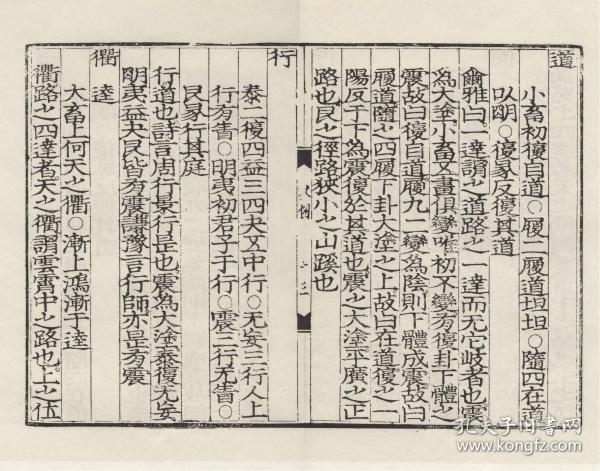 道
小畜初復自道○履二履道坦坦○隨四在道
以明○復彖反復其道
爾雅曰一達謂之道路之一達而无它歧者也震
為大塗小畜五畫俱變唯初不變有復卦下體之
震故曰復自道履九二變為陰則下體成震故曰
履道隨之四履下卦大塗之上故曰在道復之一
陽反于下為震復於其道也震之大塗平廣之正
路也艮之徑路狹小之山蹊也
行
泰二復四益三四夬五中行○无妄三行人上
行有眚○明夷初君子于行○震三行无眚○
艮彖行其庭
行道也詩言周行景行是也震為大塗泰復无妄
明夷益夬艮皆有震謙豫言行師亦是有震
衢 逵
大畜上何天之衢○漸上鴻漸于逵
衢路之四達者天之衢謂雲霄中之路也上之位
孔夫子旧书网
www.kongfz.com